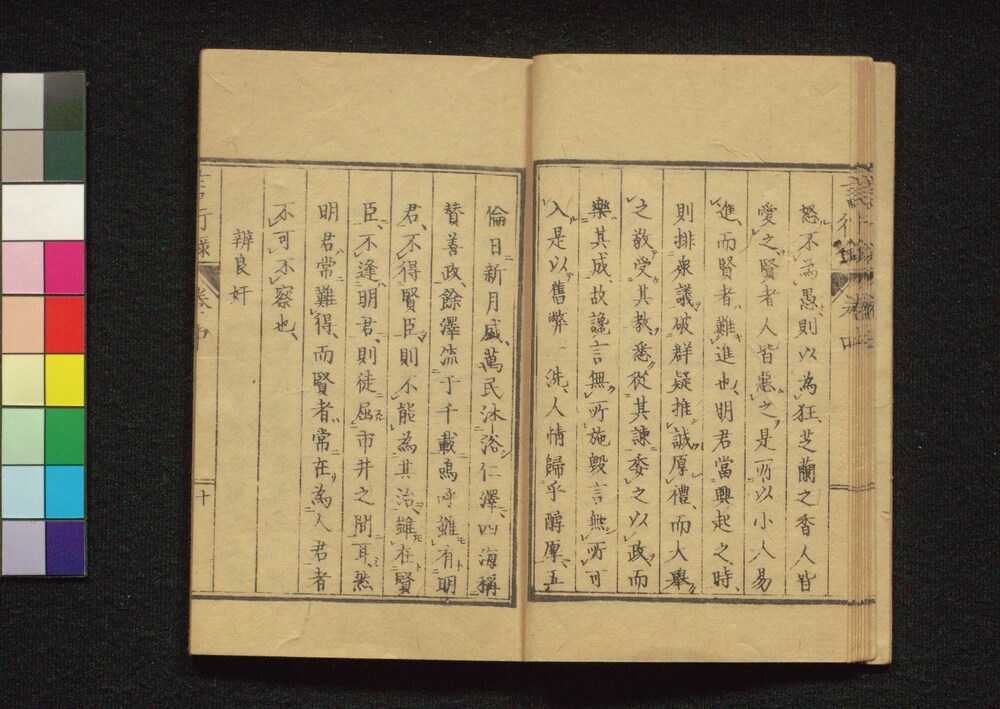 怒不為愚則以為狂芝蘭之香人皆
愛之賢者人皆惡之是所以小人易
進而賢者難進也明君當興起之時
則排衆議破群疑推誠厚禮而大舉
之敬受其教悉從其諫委之以政而
樂其成故讒言無所施毀言無所可
入是以舊弊一洗人情歸乎醇厚五
倫日新月盛萬民沐浴仁澤四海稱
賛善政餘澤流于千載嗚呼雖有明
君不得賢臣則不能為其治雖在賢
臣不逢明君則徒屈市井之間耳然
明君常難得而賢者常在為人君者
不可不察也
辨良奸
言行録 卷之四 十